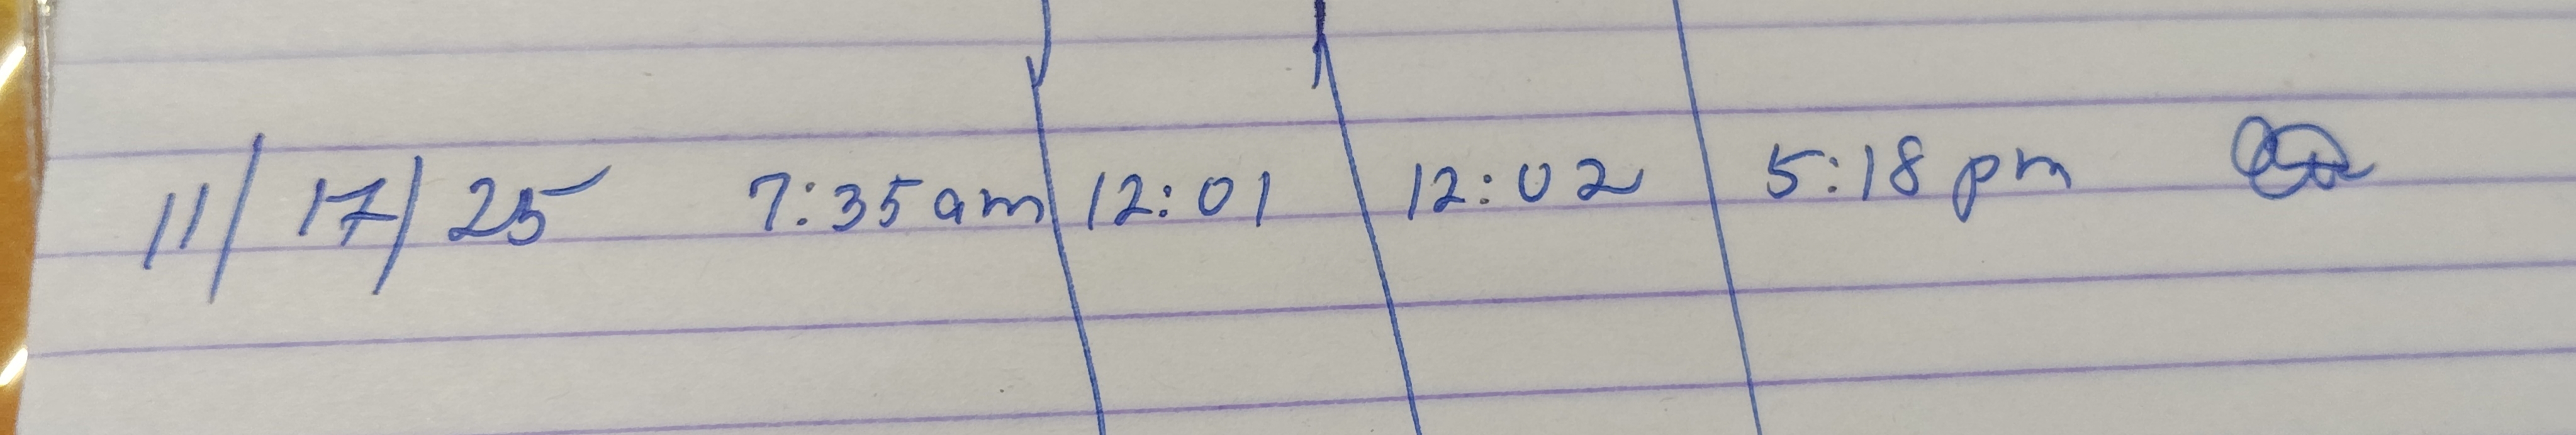 11/17/25 7:35 am 12:01 12:02 5:18 pm